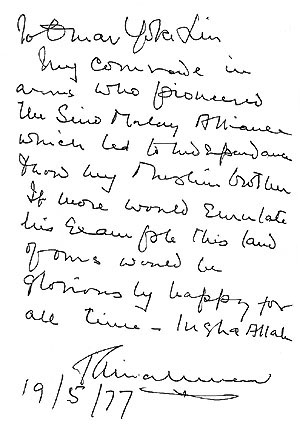 To Omar Yoke Lin
My comrade in
arms who pioneered
the Sino Malay Alliance
which led to independance
& now my Muslim brother
If more would emulate
his example this land
of ours would be
gloriously happy for
all time - Insha Allah
19/5/77